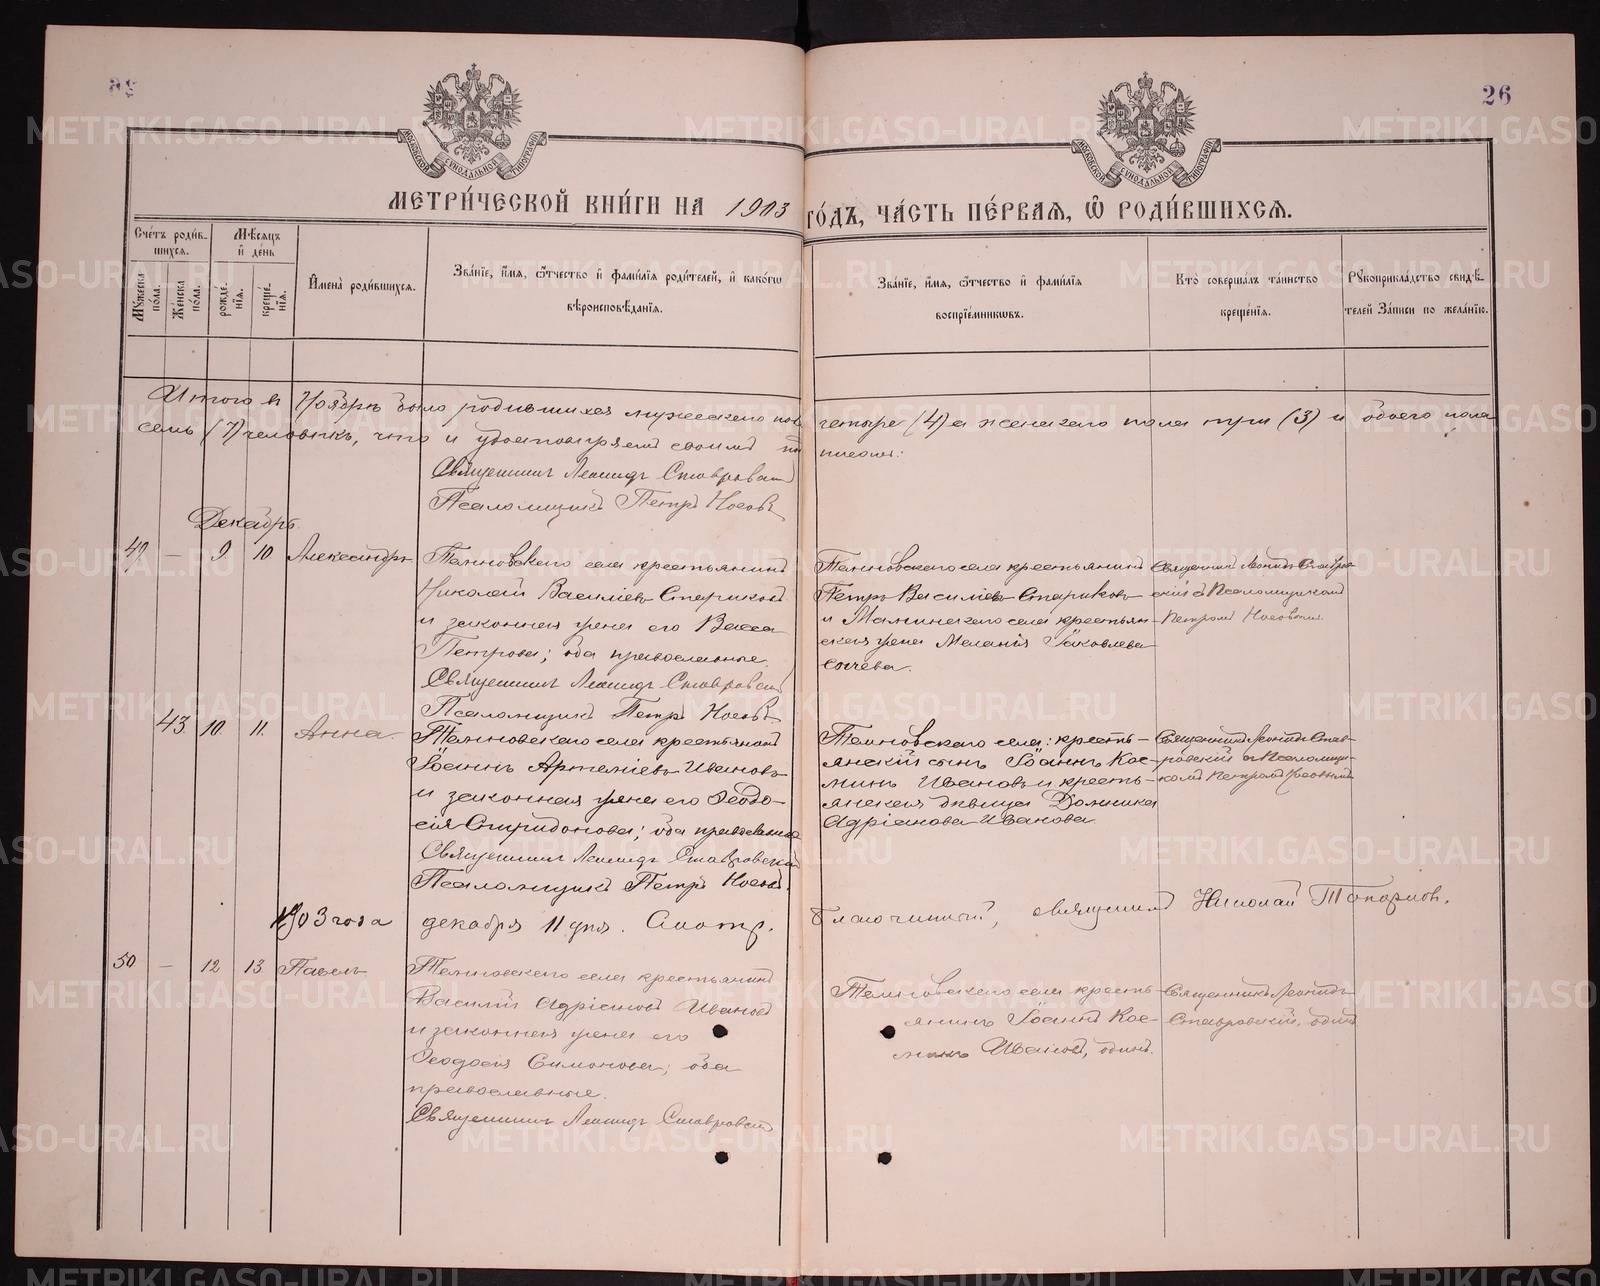 26
МЕТРИ́ЧЕСКОЙ КНИ́ГИ НА 1903 ГО́ДЪ, ЧА́СТЬ ПЕ́РВАЯ, Ѿ РОДИ́ВШИХСЯ.
МОСКОВСКОЙ СѴНОДАЛЬНОЙ ТИПОГРАФІИ
МОСКОВСКОЙ СѴНОДАЛЬНОЙ ТИПОГРАФІИ
Счéтъ роди́вшихся.
Мѣ́сяцъ и дéнь
Мꙋжеска пóла.
Жéнска пóла.
рождéнїѧ.
крещéнїѧ.
И҆менà роди́вшихся.
Звáнїе, и҆́мя, ѻ҆́тчество и҆ фами́лїя роди́телей, и҆ какóгѡ вѣроисповѣ́данїѧ.
Звáнїе, и҆́мя, ѻ҆́тчество и҆ фами́лїя воспрїéмникѡвъ.
Ктò совершáлъ тáинство крещéнїѧ.
Рꙋкоприклáдство свидѣ́телей зáписи по желáнїю.
Итого въ Ноябрѣ было родившихся мужескаго пола четыре (4) а женскаго пола три (3) и обоего пола
семь (7) человѣкъ, что и удостовѣряемъ своимъ подписомъ:
Священникъ Леонидъ Ставровскій
Псаломщикъ Петръ Носовъ
Декабрь.
49. — 9. 10 Александръ
Темновскаго села крестьянинъ
Николай Василіевъ Стариковъ
и законная жена его Васса
Петрова; оба православные.
Священникъ Леонидъ Ставровскій
Псаломщикъ Петръ Носовъ.
Темновскаго села крестьянинъ
Петръ Василіевъ Стариковъ
и Маминскаго села крестьян-
ская жена Меланія Іаковлева
Сычева.
Священникъ Леонидъ Ставров-
скій съ Псаломщикомъ
Петромъ Носовымъ.
43. 10. 11. Анна.
Темновскаго села крестьянинъ
Іоаннъ Артеміевъ Ивановъ
и законная жена его Ѳеодо-
сія Спиридонова; оба православные
Священникъ Леонидъ Ставровскій
Псаломщикъ Петръ Носовъ.
Темновскаго села: кресть-
янскій сынъ Іоаннъ Кос-
минъ Ивановъ и кресть-
янская дѣвица Домника
Адріанова Иванова.
Священникъ Леонидъ Став-
ровскій съ Псаломщи-
комъ Петромъ Носовымъ
1903 года декабря 11 дня. Смотр. благочинный, священникъ Николай Топорковъ.
50 — 12 13 Павелъ
Темновскаго села крестьянинъ
Василій Адріановъ Ивановъ
и законная жена его
Ѳеодосія Симонова; оба
православные.
Священникъ Леонидъ Ставровскій
Темновскаго села кресть-
янинъ Іоаннъ Кос-
минъ Ивановъ, одинъ.
Священникъ Леонидъ
Ставровскій, одинъ
METRIKI.GASO-URAL.RU